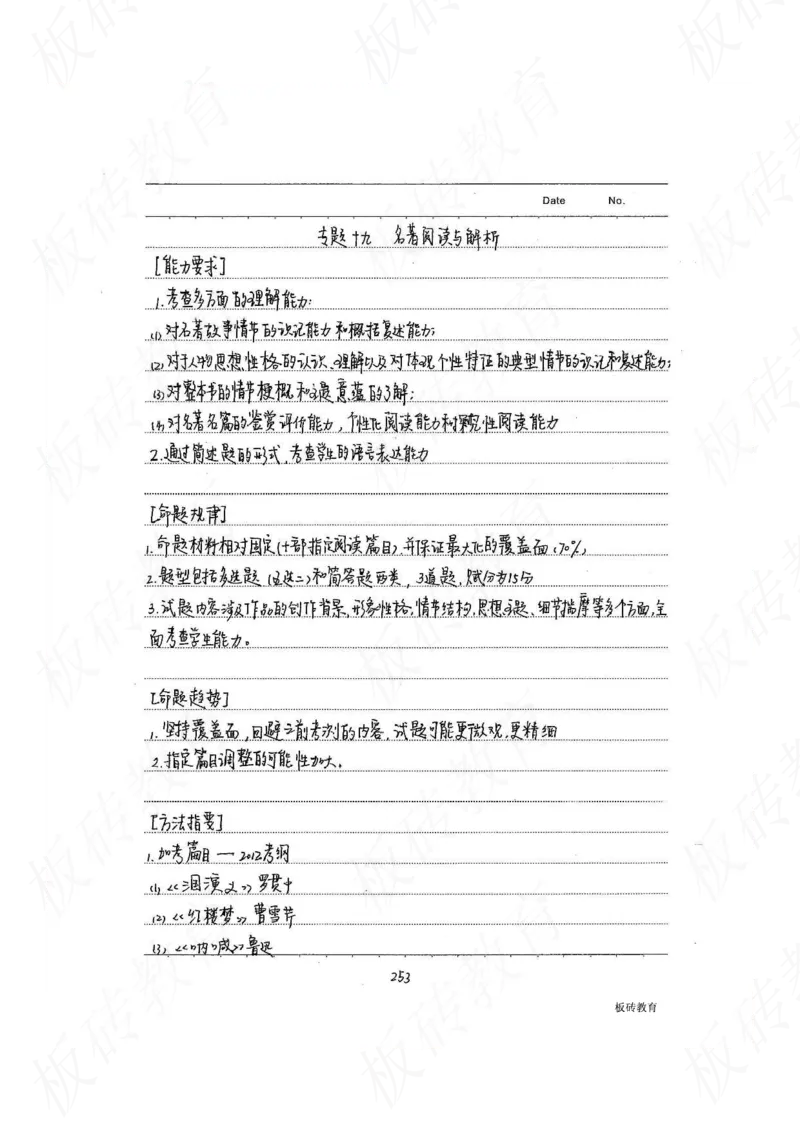 Date No.
专题十九 名著阅读与解析
[能力要求]
1.考查多方面的理解能力:
(1)对名著故事情节的识记能力和概括复述能力;
(2)对于人物思想性格的认识、理解以及对体现个性特征的典型情节的识记和复述能力;
(3)对整本书的情节梗概和主题意蕴的了解;
(4)对名著名篇的鉴赏评价能力,个性化阅读能力和探究性阅读能力
2.通过简述题的形式,考查学生的语言表达能力
[命题规律]
1.命题材料相对固定(十部指定阅读篇目),并保证最大化的覆盖面(70%)
2.题型包括多选题(五选二)和简答题两类,3道题,赋分为15分
3.试题内容涉及作品的创作背景、形象性格、情节结构、思想主题、细节描摩等多个方面,全
面考查学生能力。
[命题趋势]
1.坚持覆盖面,回避之前考测的内容,试题可能更微观,更精细
2.指定篇目调整的可能性加大。
[方法指要]
1.加考篇目一2012考纲
(1)《三国演义》罗贯中
(2)《红楼梦》曹雪芹
(3)《呐喊》鲁迅
253
板砖教育